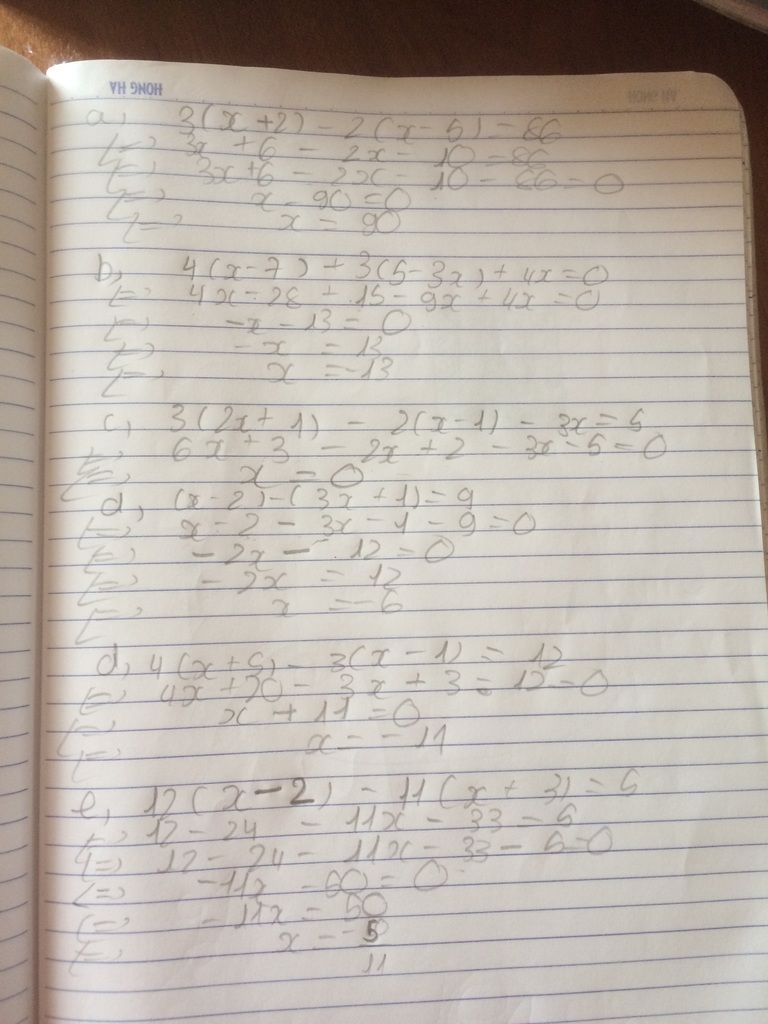 HONG HA
a, 3(x+2) - 2(x-5) = 86
<=> 3x + 6 - 2x - 10 = 86
<=> 3x+6 - 2x - 10 - 86 = 0
<=> x - 90 = 0
<=> x = 90
b, 4(x-7) + 3(5-3x) + 4x = 0
<=> 4x - 28 + 15 - 9x + 4x = 0
<=> -x - 13 = 0
<=> -x = 13
<=> x = -13
c, 3(2x+1) - 2(x-1) - 3x = 5
<=> 6x + 3 - 2x + 2 - 3x - 5 = 0
<=> x = 0
d, (x-2) - (3x+1) = 9
<=> x - 2 - 3x - 1 - 9 = 0
<=> -2x - 12 = 0
<=> -2x = 12
<=> x = -6
d, 4(x+5) - 3(x-1) = 12
<=> 4x + 20 - 3x + 3 - 12 = 0
<=> x + 11 = 0
<=> x = -11
e, 12(x-2) - 11(x+3) = 5
<=> 12 - 24 - 11x - 33 = 5
<=> 12 - 24 - 11x - 33 - 5 = 0
<=> -11x - 50 = 0
<=> -11x = 50
<=> x = -
11